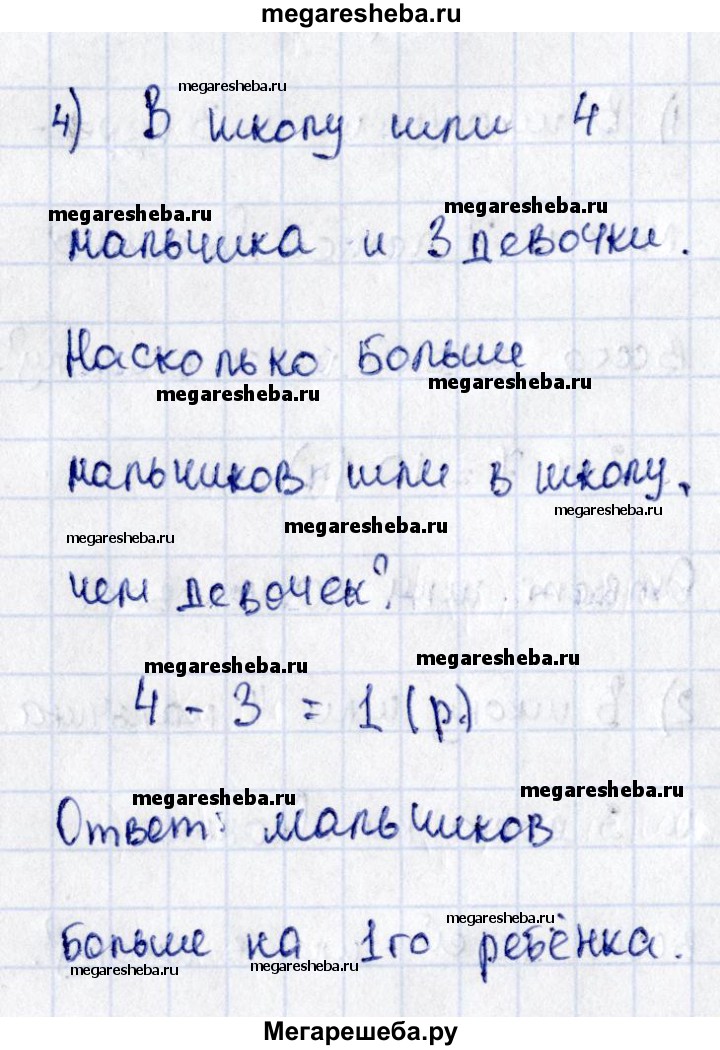 megaresheba.ru
megaresheba.ru
4) В школу шли 4
megaresheba.ru megaresheba.ru
мальчика и 3 девочки.
Насколько больше
megaresheba.ru megaresheba.ru
мальчиков шли в школу,
megaresheba.ru megaresheba.ru megaresheba.ru
чем девочек?
megaresheba.ru megaresheba.ru
4 - 3 = 1 (р.)
megaresheba.ru megaresheba.ru
Ответ: мальчиков
megaresheba.ru
больше на 1го ребёнка.
megaresheba.ru megaresheba.ru
Мегарешеба.ру